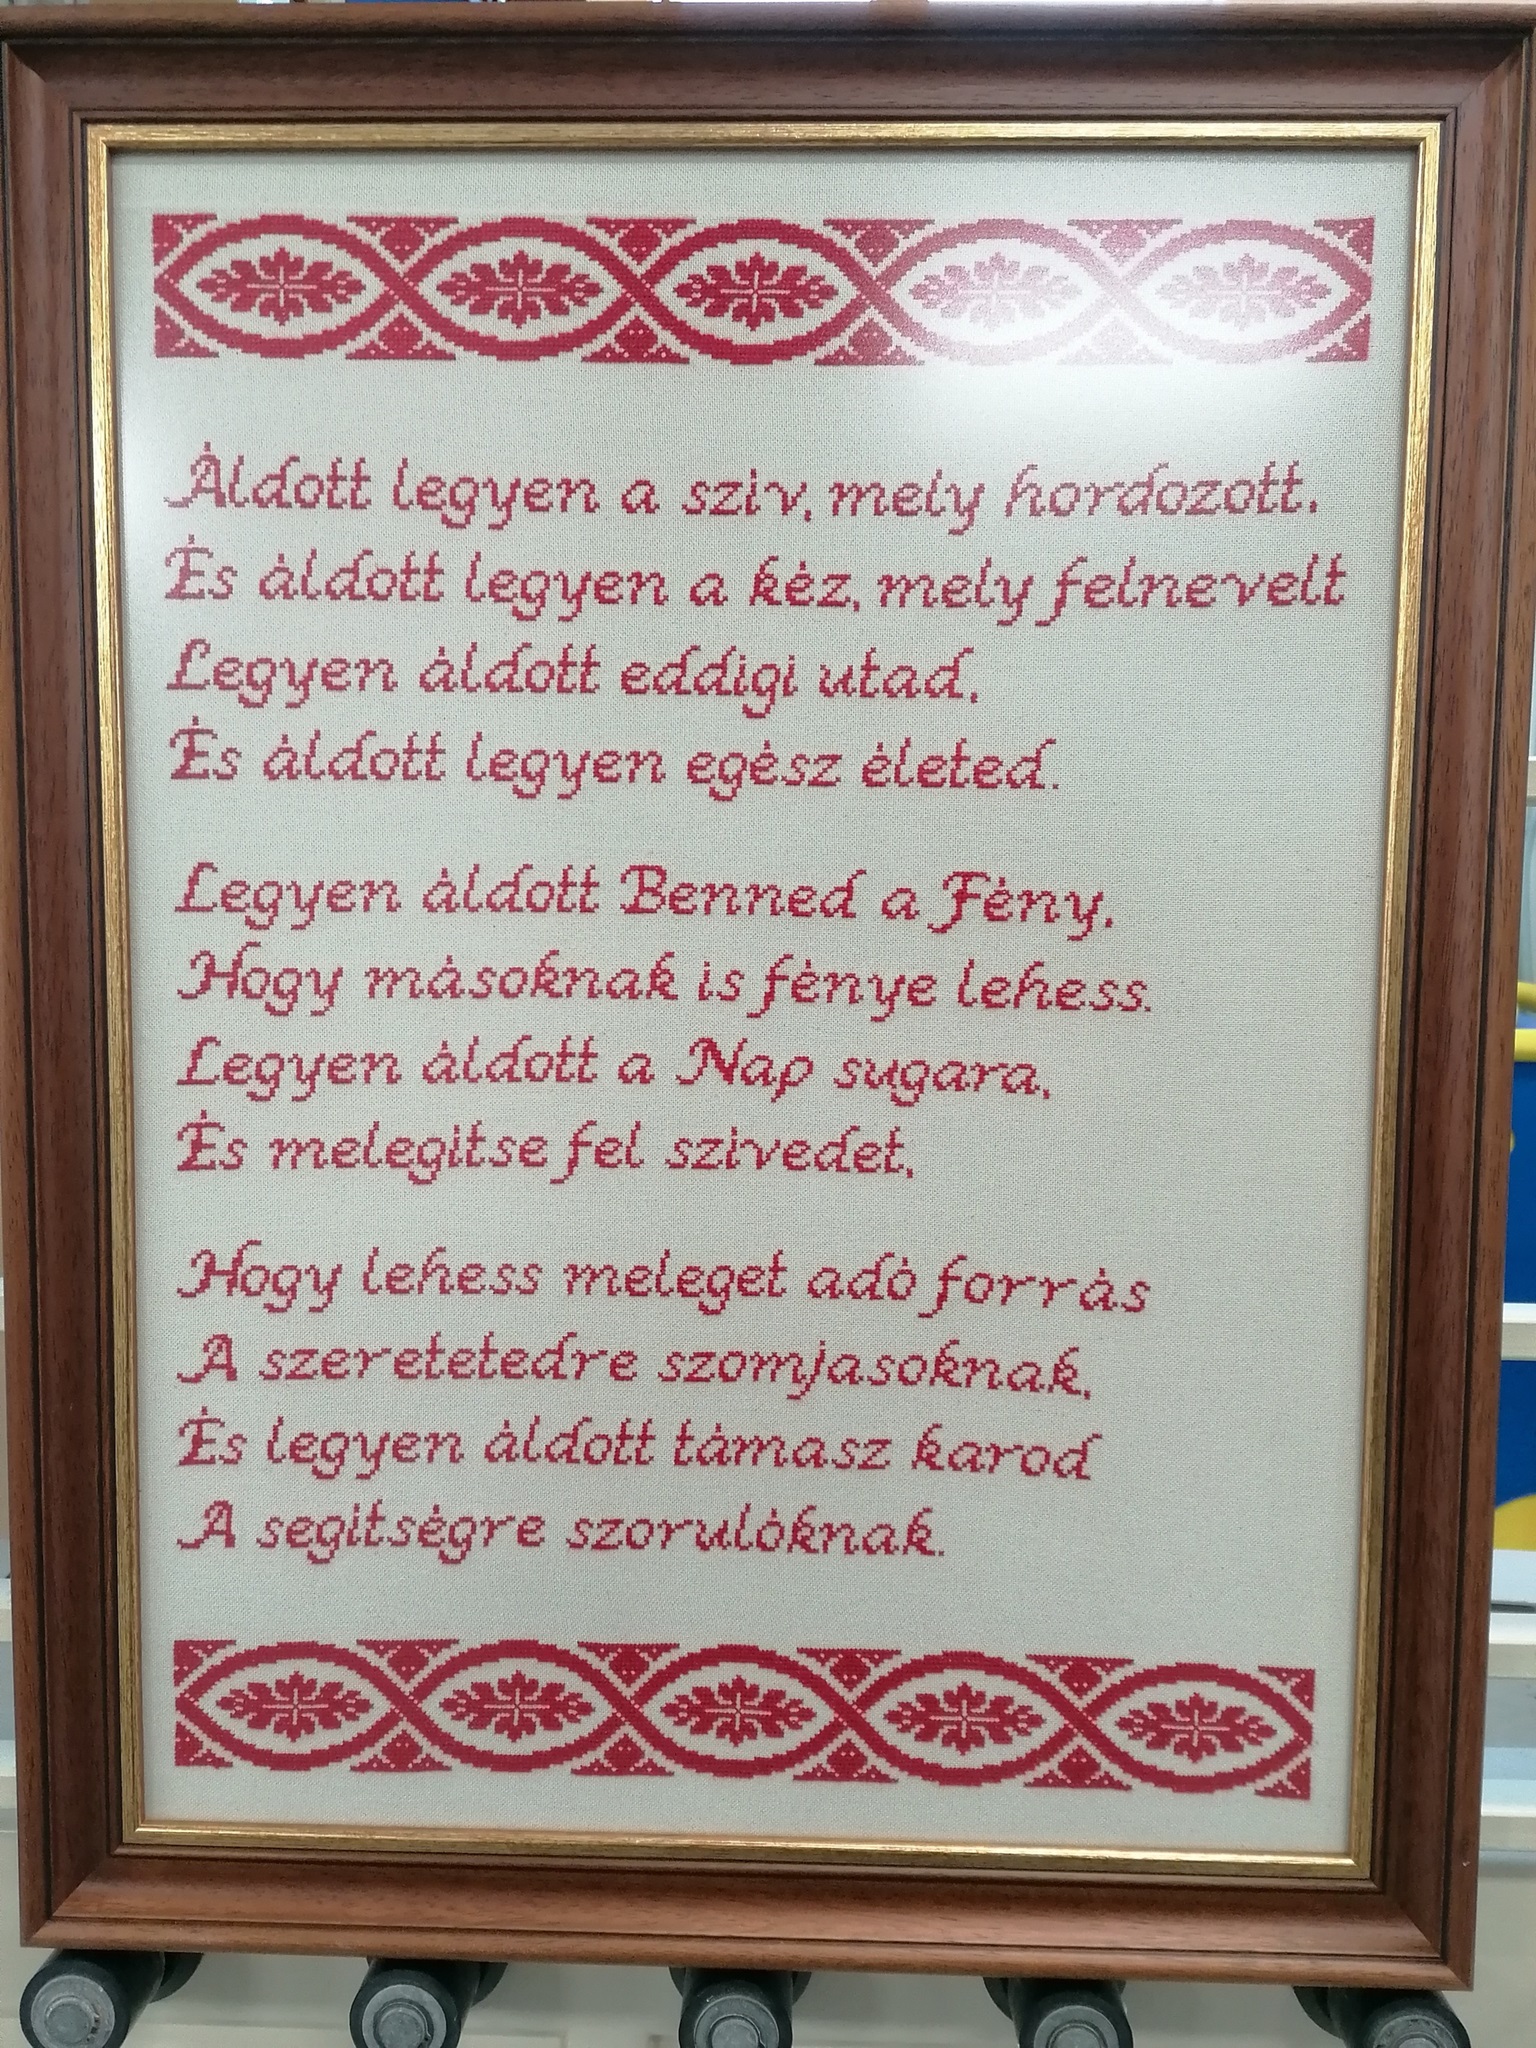 Áldott legyen a szív, mely hordozott.
És áldott legyen a kéz, mely felnevelt
Legyen áldott eddigi utad,
És áldott legyen egész életed.
Legyen áldott Benned a Fény,
Hogy másoknak is fénye lehess.
Legyen áldott a Nap sugara,
És melegítse fel szívedet,
Hogy lehess meleget adó forrás
A szeretetedre szomjasoknak,
És legyen áldott támasz karod
A segítségre szorulóknak.